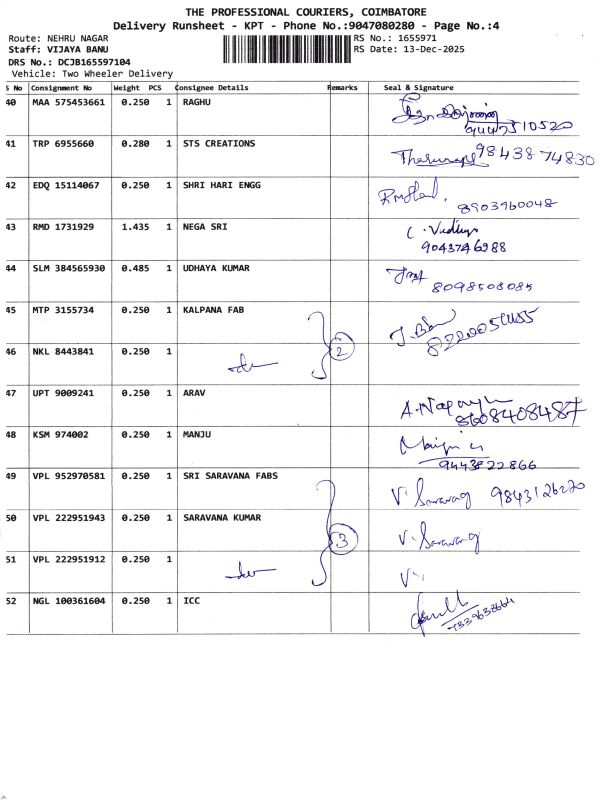 THE PROFESSIONAL COURIERS, COIMBATORE
Delivery Runsheet - KPT - Phone No.:9047080280 - Page No.:4
Route: NEHRU NAGAR RS No.: 1655971
Staff: VIJAYA BANU RS Date: 13-Dec-2025
DRS No.: DCJB165597104
Vehicle: Two Wheeler Delivery
S No Consignment No Weight PCS Consignee Details Remarks Seal & Signature
40 MAA 575453661 0.250 1 RAGHU
9447510520
41 TRP 6955660 0.280 1 STS CREATIONS 98438 74830
42 EDQ 15114067 0.250 1 SHRI HARI ENGG
8903960048
43 RMD 1731929 1.435 1 NEGA SRI C. Vidhya
9043746988
44 SLM 384565930 0.485 1 UDHAYA KUMAR
8098508085
45 MTP 3155734 0.250 1 KALPANA FAB
46 NKL 8443841 0.250 1 2
47 UPT 9009241 0.250 1 ARAV
8608408487
48 KSM 974002 0.250 1 MANJU
9443822866
49 VPL 952970581 0.250 1 SRI SARAVANA FABS V. Saravang 9843126220
50 VPL 222951943 0.250 1 SARAVANA KUMAR 3 V. Saravang
51 VPL 222951912 0.250 1 V.
52 NGL 100361604 0.250 1 ICC